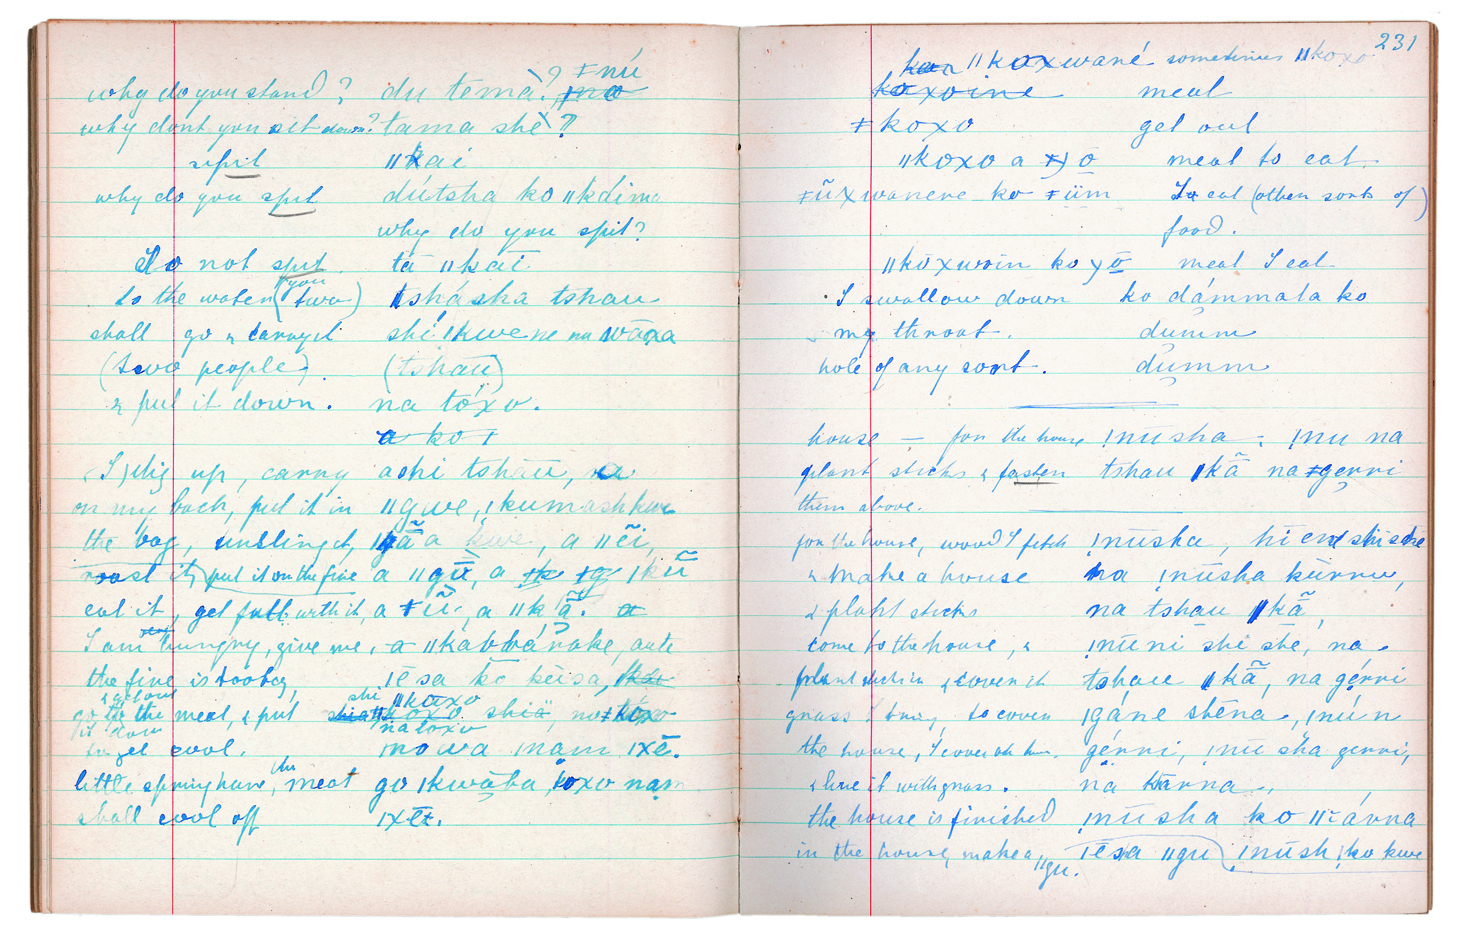 why do you stand? du tema? ǂnú
why dont you sit down? tama shè?
spit ǁkai
why do you spit dútsha ko ǁkáima
why do you spit?
Do not spit. tá ǁkai
to the water (you two) tshásha tshau
shall go & carry it shé ǀkwe ne na wāxa
(two people). (tshau)
& put it down. na tóxo.
a ko ǀ
(I) dig up, carry ashi tshāū, na
on my back, put it in ǁgwe, ǃkumashkwe
the bag, unsling it, a, a ǁẽi,
roast it, put it on the fire a ǁgū, a ǀkũ
eat it, get full with it, a ǂũ, a ǁkã. a
I am very hungry, give me, a ǁkabbá nake, aute
the fire is too big, ǀēsa ko kēisa,
& get down shi ǁkoxo
go to the meat, & put shiā, na ǂkoxo
it down na toxo
to get cool. mowa ǀnam ǀxē.
little springhare, the meat go ǀkwāba koxo nam
shall cool off ǀxē.
231
ǁkoxwané sometimes ǁkoxo
koxoine meat
ǂkoxo get out
ǁkoxo a ō meat to eat.
ǂũxwanere ko ǂüm To eat (other sorts of)
food.
ǁkōxwoin ko yō meat I eat
I swallow down ko dámmata ko
my throat. dumm
hole of any sort. dumm
house — for the house ǃnūsha, ǃnu na
plant sticks & fasten tshau ǁkã na ǂgerri
them above.
for the house, wood I fetch ǃnūsha, hi
& make a house na ǃnūsha kürru,
& plant sticks na tshau ǁkã,
come to the house, & ǃnūni shi she, na
plant sticks & cover it tshau ǁkã, na gérri
grass I bring to cover ǀgáne shēna, ǃnún
the house, I cover the house. gérri, ǃnū sha gerri,
& line it with grass. na karna,
the house is finished ǃnūsha ko árna
in the house, make a ǁgu. ǀēsa ǁgu ǃnūsh ko kwe